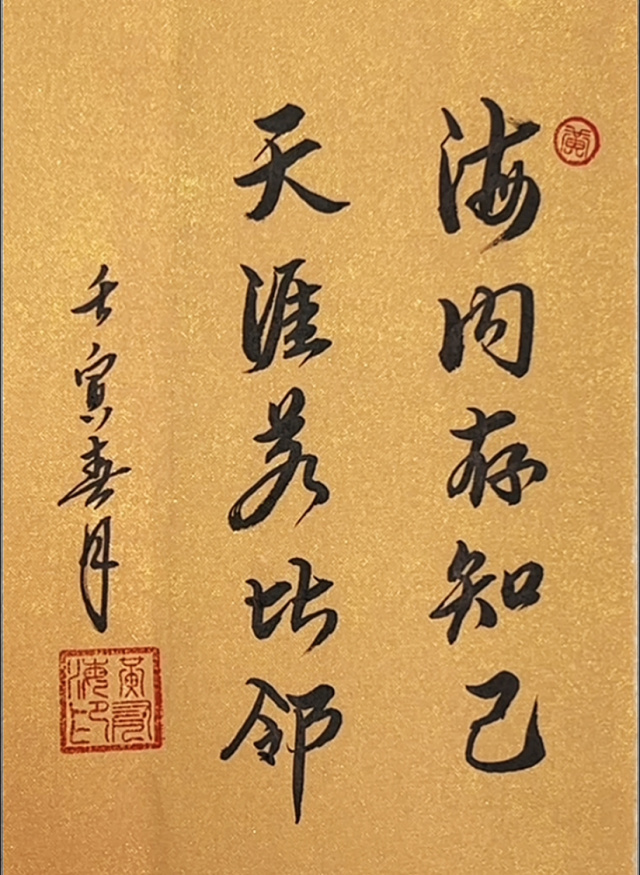 海内存知己
天涯若比邻
壬寅春月
黄